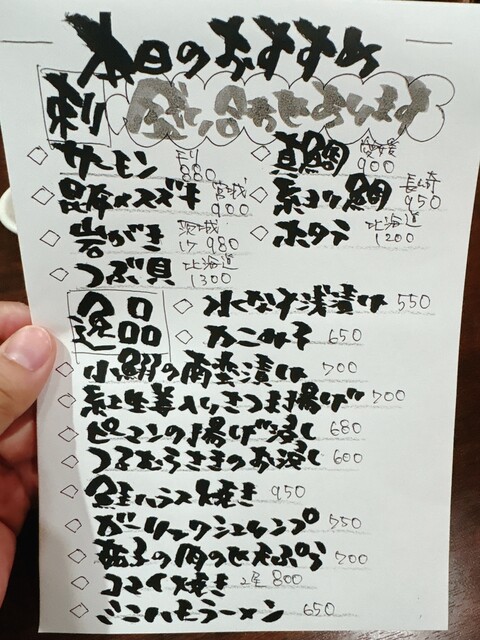 本日のおすすめ
刺 盛り合わせあります
◇サーモン チリ 880
◇真鯛 愛媛 900
◇昆布〆スズキ 宮城 900
◇糸ヨリ鯛 長崎 950
◇岩がき 茨城 1ケ 980
◇ホタテ 北海道 1200
◇つぶ貝 北海道 1300
逸品
◇水なす浅漬け 550
◇カニみそ 650
◇小鯵の南蛮漬け 700
◇紅生姜入りさつま揚げ 700
◇ピーマンの揚げ浸し 680
◇つるむらさきのお浸し 600
◇鮭ハラス焼き 950
◇ガーリックシュリンプ 750
◇茄子の肉のせ天ぷら 700
◇コマイ焼き 2尾 800
◇ミニハモラーメン 650